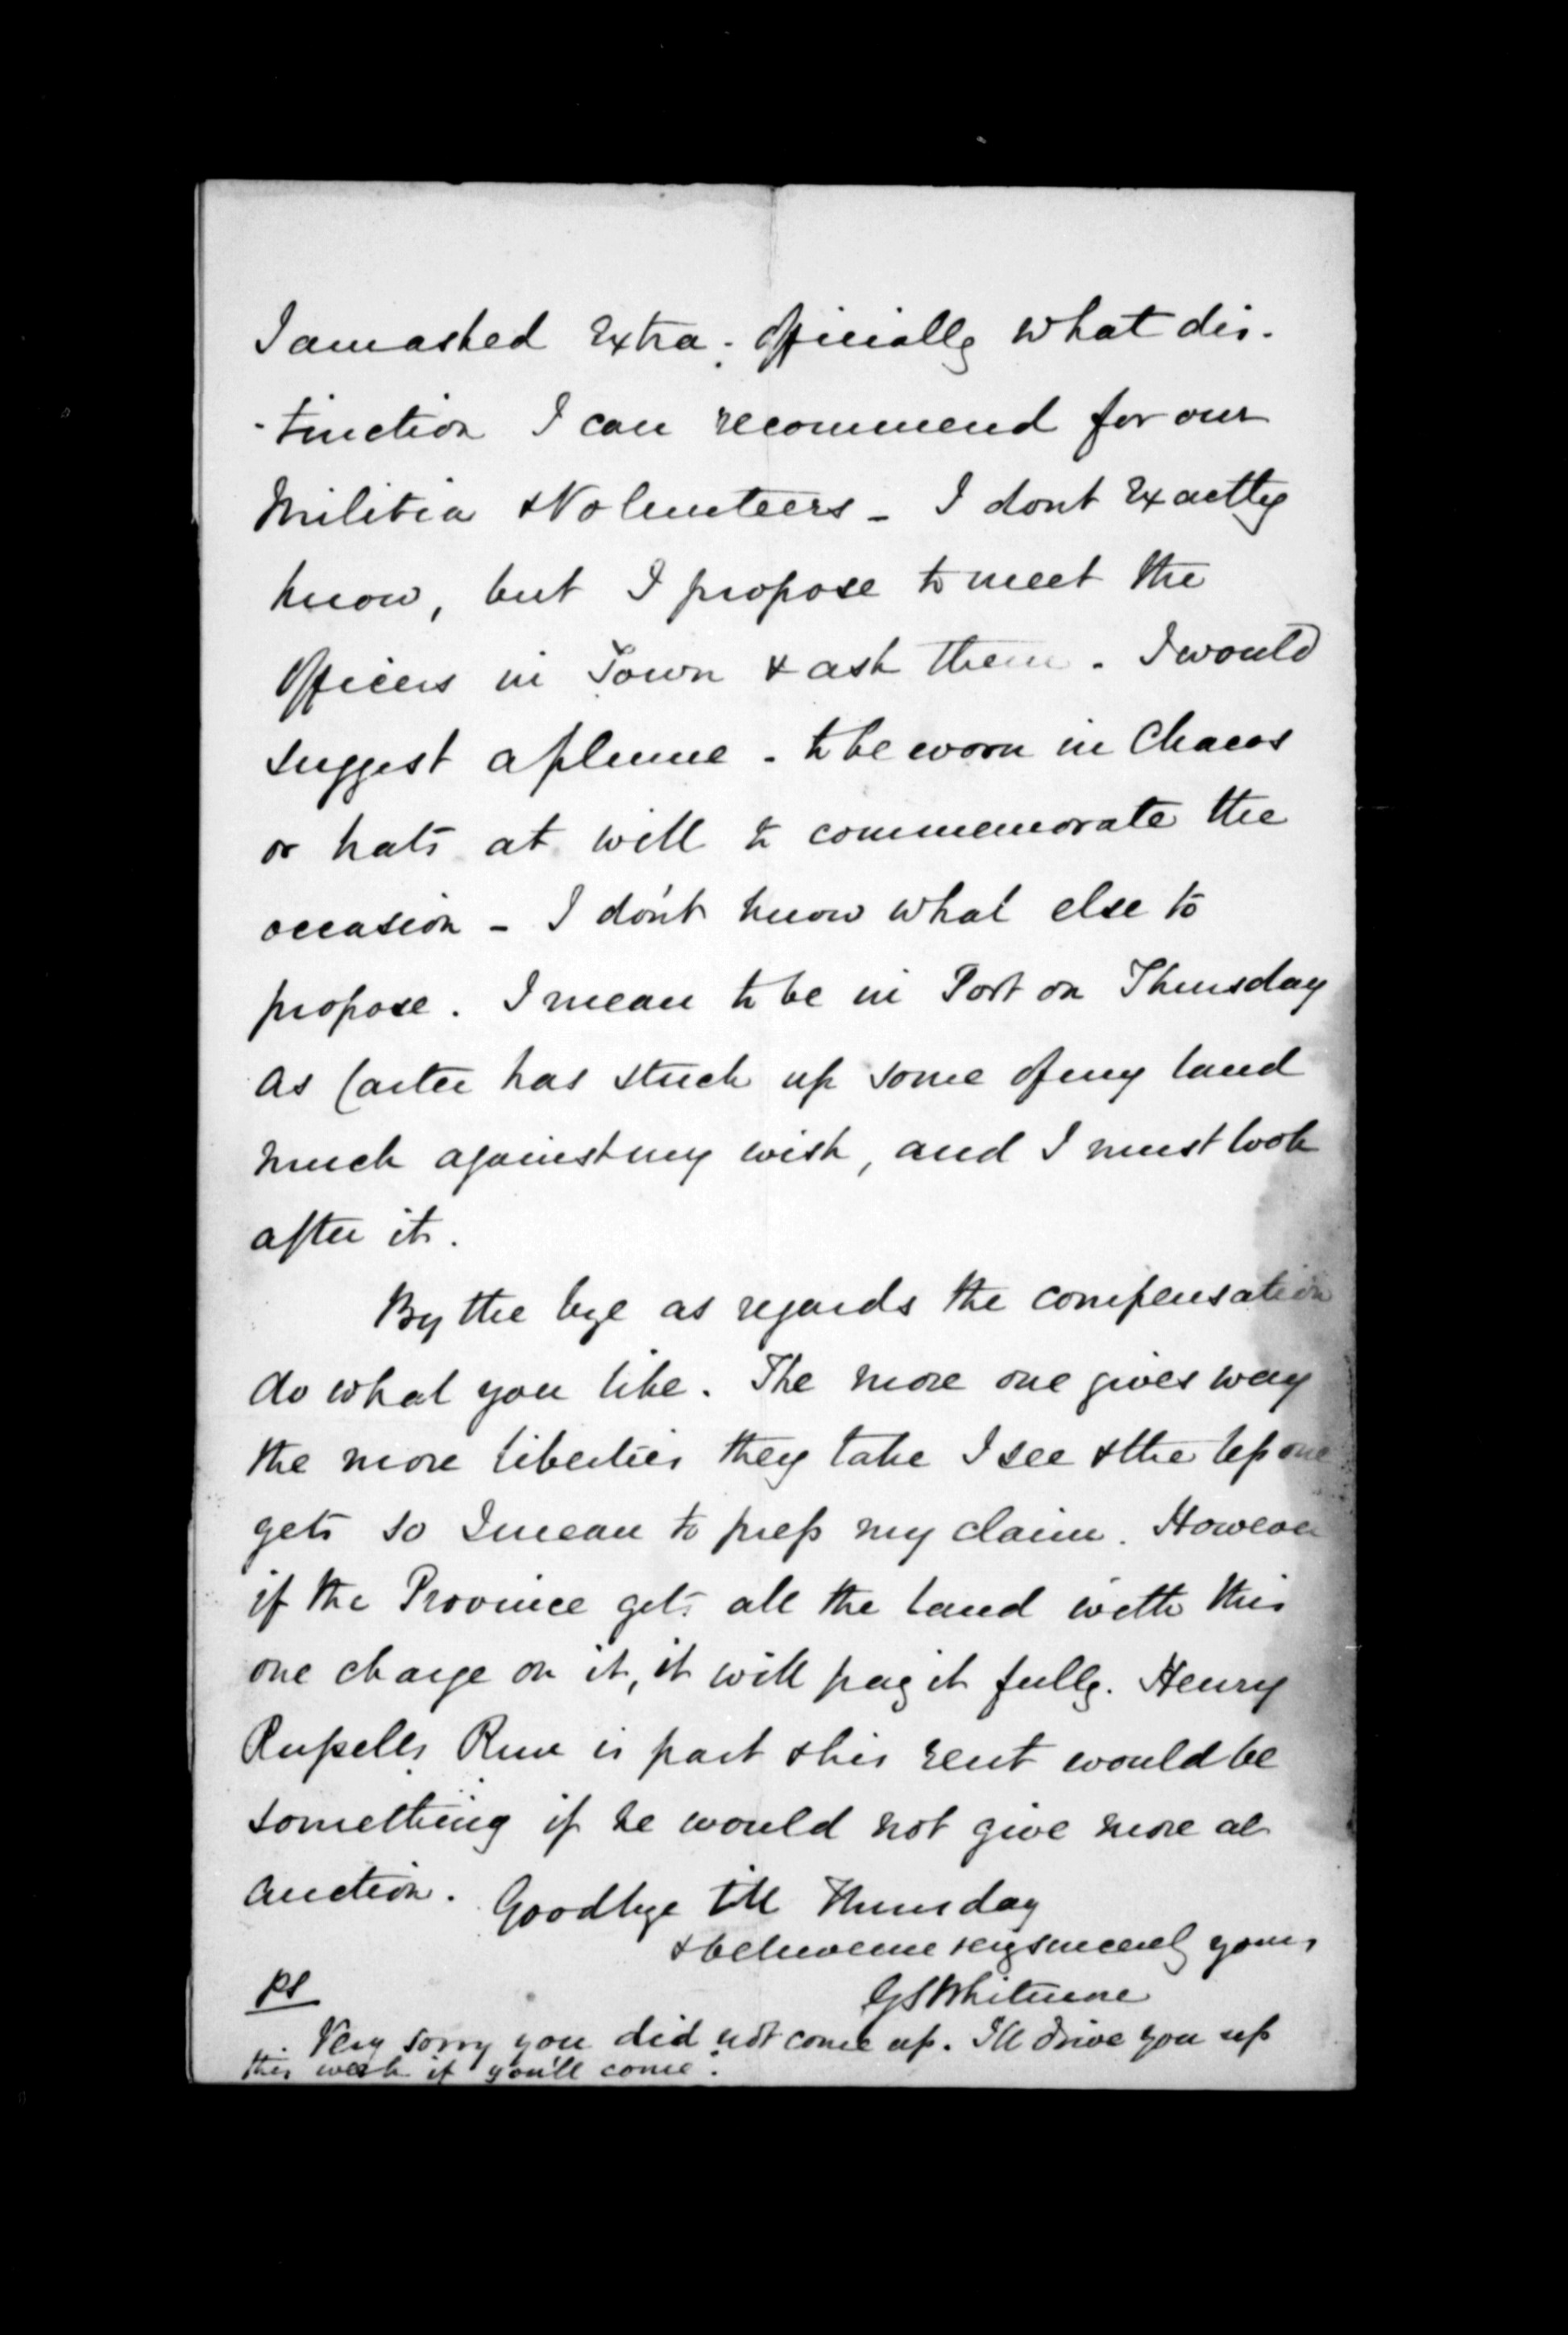 I am asked Extra-Officially what dis-
-tinction I can recommend for our
Militia & Volunteers - I dont Exactly
know, but I propose to meet the
Officers in Town & ask them. I would
suggest a plume - to be worn in Chacos
or hats at will to commemorate the
occasion - I don't know what else to
propose. I mean to be in Port on Thursday
as Carter has stuck up some of my land
much against my wish, and I must look
after it.
By the bye as regards the compensation
do what you like. The more one gives way
the more liberties they take I see & the less one
gets so I mean to press my claim. However
if the Province gets all the land with this
one charge on it, it will pay it fully. Henry
Russells Run is part & his rent would be
something if he would not give more at
auction. Goodbye till Thursday
& believe me very sincerely yours
GS Whitmore
PS
Very sorry you did not come up. I'll drive you up
this week if you'll come.